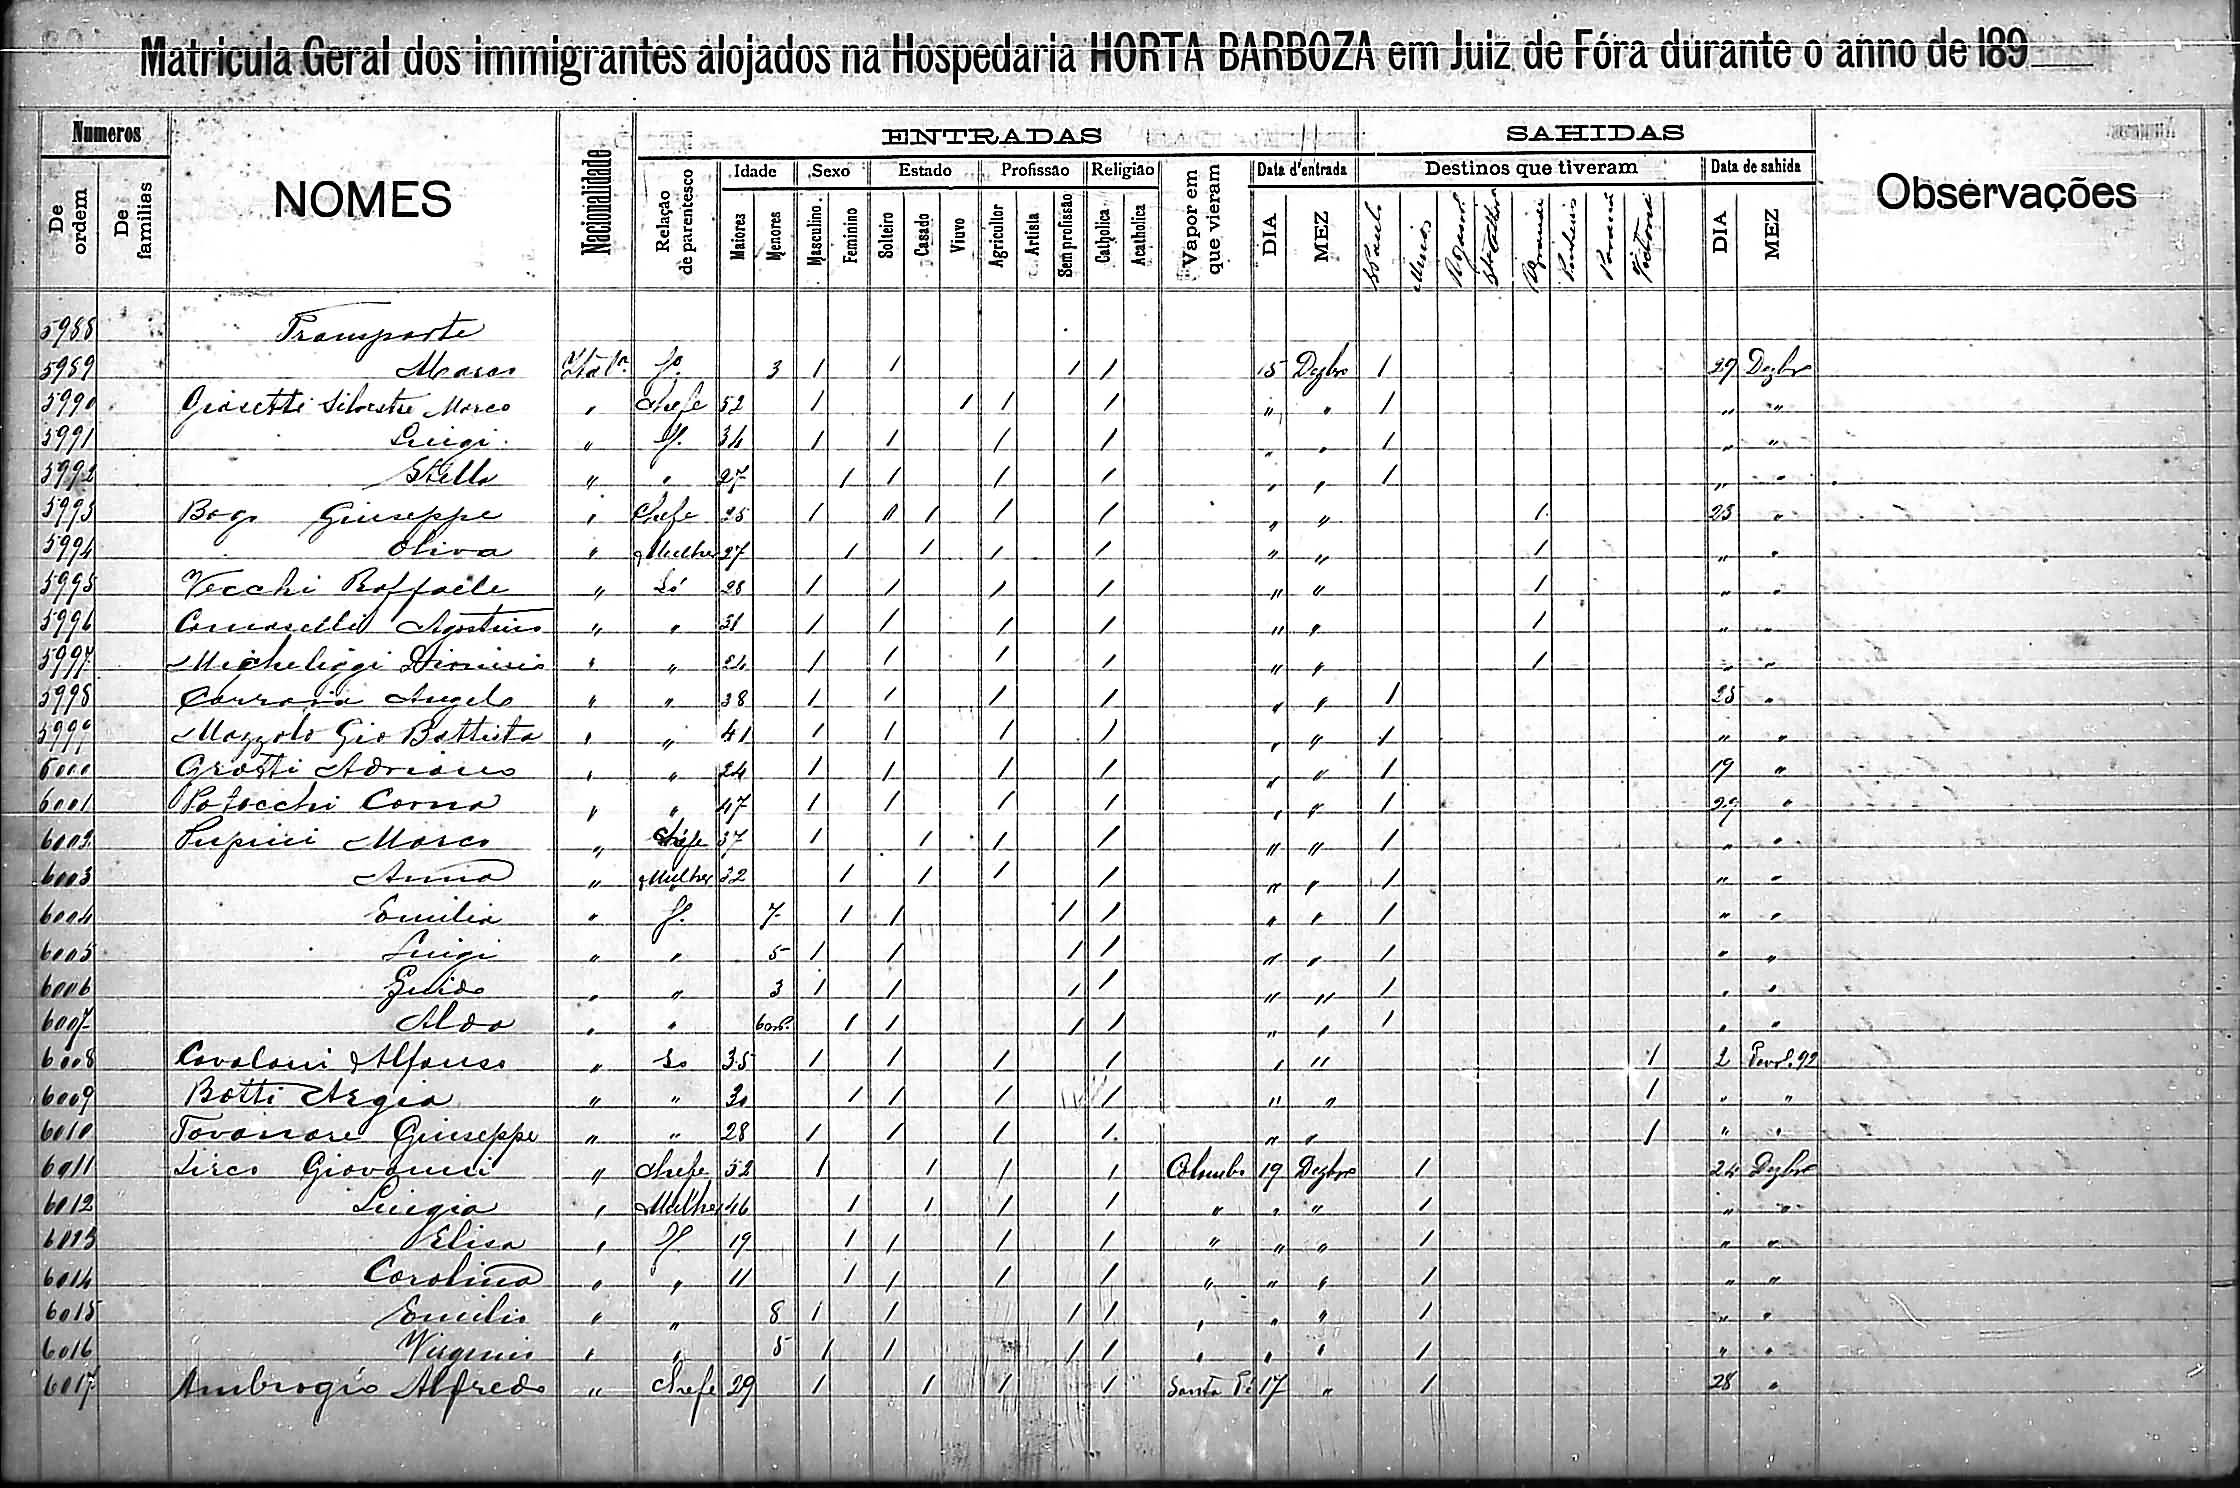 Matricula Geral dos immigrantes alojados na Hospedaria HORTA BARBOZA em Juiz de Fóra durante o anno de 189
Numeros NOMES Nacionalidade ENTRADAS SAHIDAS Observações
De ordem De familias Relação de parentesco Idade Sexo Estado Profissão Religião Vapor em que vieram Data d'entrada Destinos que tiveram Data de sahida
Maiores Menores Masculino Feminino Solteiro Casado Viuvo Agricultor Artista Sem profissão Catholica Acatholica DIA MEZ S. Paulo Minas Paraná Victoria DIA MEZ
5988 Transporte
5989 Marco fo. 3 1 1 1 1 15 Dezbro 1 29 Dezbro
5990 Silvestre Marco " Chefe 52 1 1 1 1 " " 1 " "
5991 Luigi " f. 34 1 1 1 1 " " 1 " "
5992 Stella " " 27 1 1 1 1 " " 1 " "
5993 Giuseppe " Chefe 25 1 1 1 1 1 " " 1 23 "
5994 Oliva " Mulher 27 1 1 1 1 " " 1 " "
5995 Vecchi Raffaele " Só 28 1 1 1 1 " " 1 " "
5996 Agostino " " 31 1 1 1 1 " " 1 " "
5997 Dionisio " " 24 1 1 1 1 " " 1 " "
5998 Angelo " " 38 1 1 1 1 " " 1 25 "
5999 Mazzolo Gio Battista " " 41 1 1 1 1 " " 1 " "
6000 Grotti Adriano " " 24 1 1 1 1 " " 1 19 "
6001 " " 47 1 1 1 1 " " 1 29 "
6002 Pupini Marco " Chefe 37 1 1 1 1 " " 1 " "
6003 Anna " Mulher 32 1 1 1 1 " " 1 " "
6004 Emilia " f. 7 1 1 1 1 " " 1 " "
6005 Luigi " " 5 1 1 1 1 " " 1 " "
6006 Guido " " 3 1 1 1 1 " " 1 " "
6007 Alda " " 1 1 1 1 " " 1 " "
6008 Cavaloni Alfonso " So 35 1 1 1 1 " " 1 2
6009 Botti Argia " " 30 1 1 1 1 " " 1 " "
6010 Giuseppe " " 28 1 1 1 1 " " 1 " "
6011 Giovanni " Chefe 52 1 1 1 1 Colombo 19 Dezbro 1 24 Dezbro
6012 Luigia " Mulher 46 1 1 1 1 " " " 1 " "
6013 Elisa " f. 19 1 1 1 1 " " " 1 " "
6014 Carolina " " 11 1 1 1 1 " " " 1 " "
6015 Emilio " " 8 1 1 1 1 " " " 1 " "
6016 Virginio " " 5 1 1 1 1 " " " 1 " "
6017 Ambrogio Alfredo " Chefe 29 1 1 1 1 Santa Fé 17 " 1 28 "